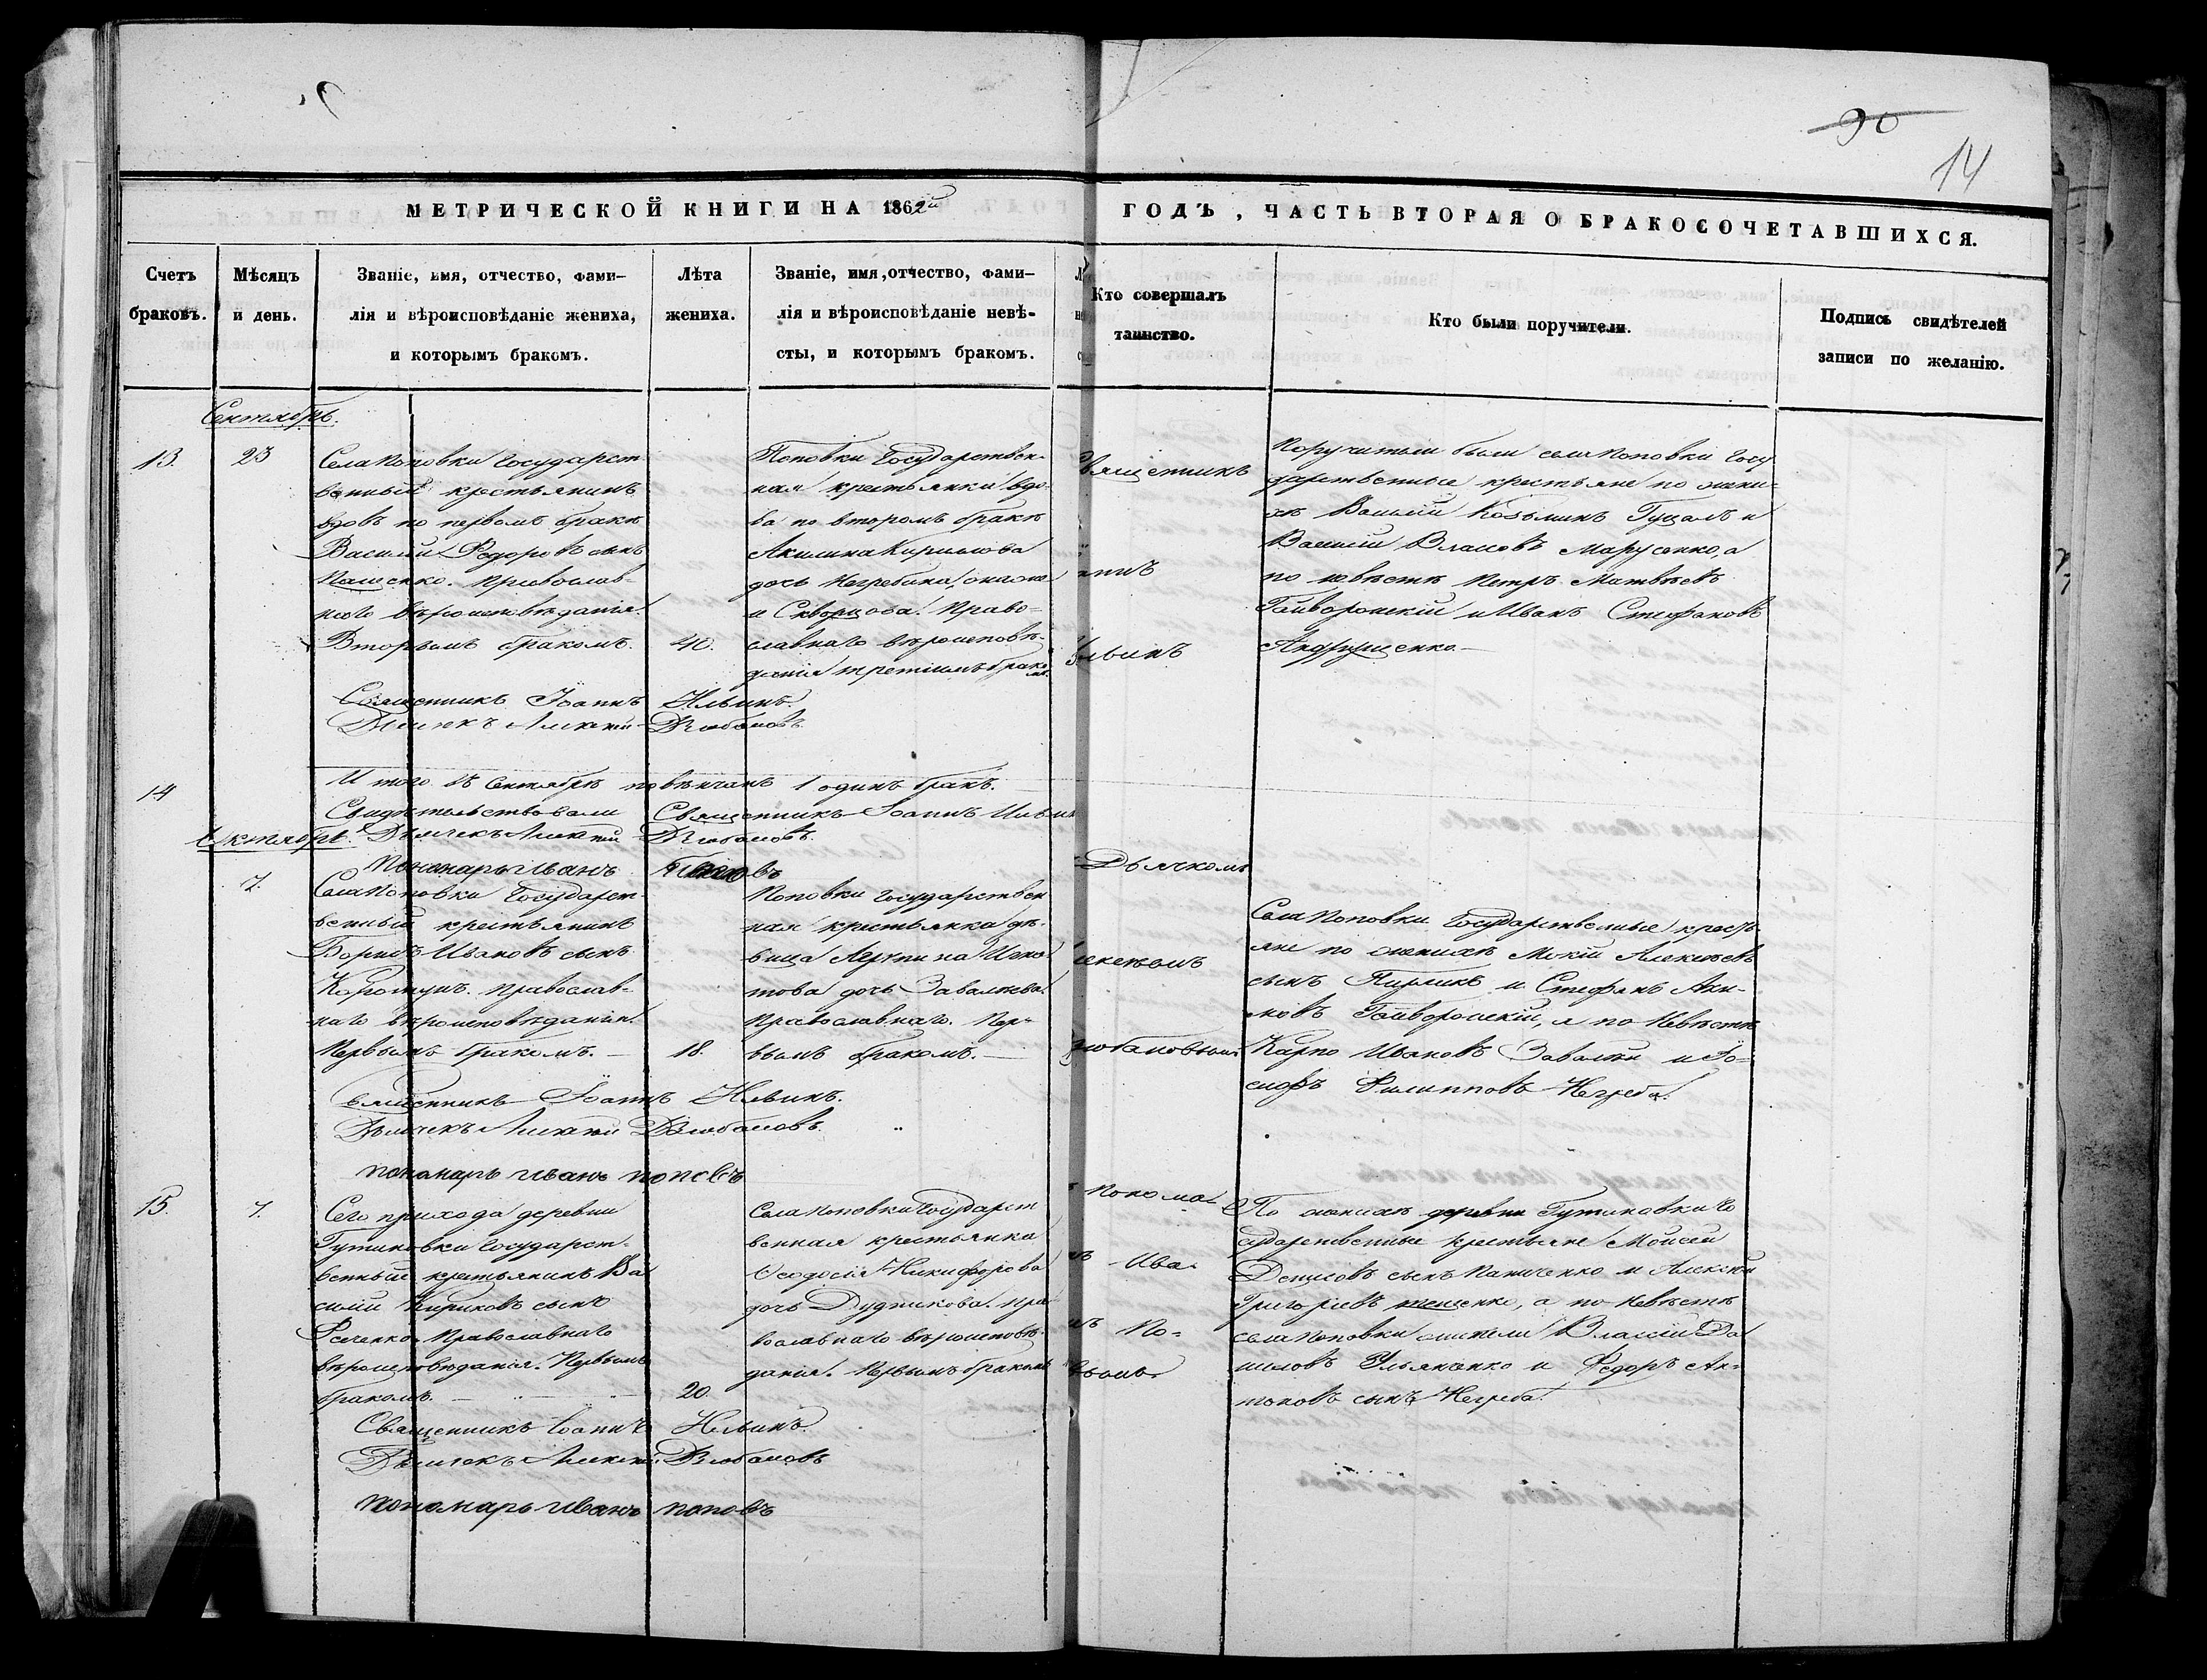 90
14
МЕТРИЧЕСКОЙ КНИГИ НА 1862й
ГОДЪ, ЧАСТЬ ВТОРАЯ О БРАКОСОЧЕТАВШИХСЯ.
Счетъ
браковъ.
Мѣсяцъ
и день.
Званіе, имя, отчество, фами-
лія и вѣроисповѣданіе жениха,
и которымъ бракомъ.
Лѣта
жениха.
Званіе, имя, отчество, фами-
лія и вѣроисповѣданіе невѣ-
сты, и которымъ бракомъ.
Кто совершалъ
таинство.
Кто были поручители.
Подпись свидѣтелей
записи по желанію.
Сентябрь.
13.
23
Села Поповки Государст
венный крестьянинъ
вдовъ по первомъ бракѣ
Василий Федоровъ сынъ
Пащенко. Православ-
наго вѣроисповѣданія.
Вторымъ бракомъ.
40.
Поповки Государствен-
ная крестьянка вдо-
ва по второмъ бракѣ
Акилина Кирилова
дочь Негребина, онаже
и Скворцова. Право-
славнаго вѣроисповѣ-
данія третіимъ брако
мъ.
Священникъ
аннъ
Ильинъ
Поручители были села Поповки Госу
дарственные крестьяне по жени-
хѣ Василій Козьминъ Гуцалъ и
Василій Власовъ Марусенко, а
по невѣстѣ Петръ Матвѣевъ
Гайворонскій и Иванъ Стефановъ
Андрущенко.
Священникъ Іоаннъ Ильинъ.
Дьячекъ Алексѣй
Итого въ Сентябрѣ повѣнчанъ 1 одинъ бракъ.
Свидѣтельствовали Священникъ Іоаннъ Ильинъ
14
Октябрь.
Дьячекъ Алексѣй
Пономарь Иванъ Поповъ
7.
Села Поповки Государст-
венный крестьянинъ
Борисъ Ивановъ сынъ
Коротунъ. Православ-
наго вѣроисповѣданія.
Первымъ бракомъ.
18.
Поповки Государствен
ная крестьянка дѣ-
вица Игна
това дочь Завалиева.
Православнаго. Пер-
вымъ бракомъ.
Дьячкомъ
лексѣемъ
Села Поповки Государственные кресть
яне по женихѣ Мокій Алексѣевъ
сынъ и Стефанъ Аки-
мовъ Гайворонскій, а по Невѣстѣ
Карпо Ивановъ Завалій и Іо-
сифъ Филипповъ Негреба.
Священникъ Іоаннъ Ильинъ.
Дьячекъ Алексѣй
Пономарь Иванъ Поповъ
15.
7.
Сего прихода деревни
Гутиновки Государст-
венный крестьянинъ Ва
силій Кириковъ сынъ
Фесенко. Православнаго
вѣроисповѣданія. Первымъ
бракомъ.
20.
Села Поповки Государст
венная крестьянка
Ѳеодосія Никифорова
дочь Дудникова. Пра-
вославнаго вѣроисповѣ-
данія. Первымъ бракомъ
Понома-
Ива-
По-
вымъ.
По женихѣ деревни Гутиновки Го
сударственные крестьяне Моисей
Денисовъ сынъ Папченко и Алексѣй
Григоріевъ Тещенко, а по невѣстѣ
села Поповки жители Власій Да
ниловъ Ульянченко и Федоръ Ан-
тоновъ сынъ Негреба.
Священникъ Іоаннъ Ильинъ.
Дьячекъ Алексѣй
Пономарь Иванъ Поповъ